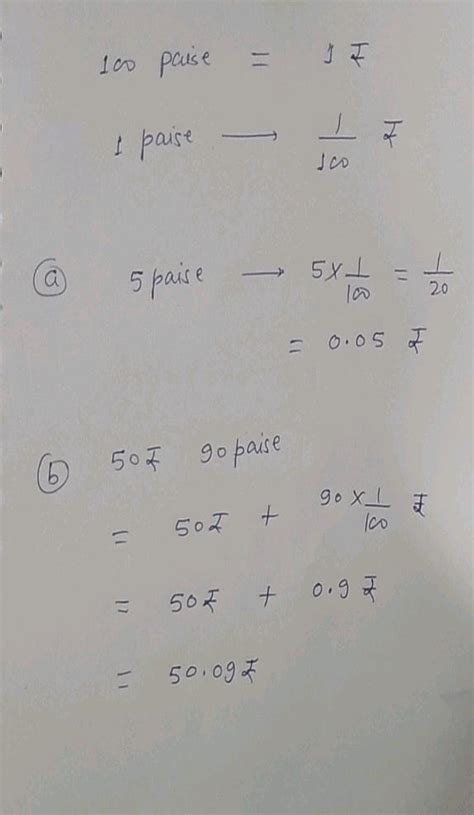 100 paise = 1 ₹
1 paise → 1/100 ₹
(a) 5 paise → 5 × 1/100 = 1/20
= 0.05 ₹
(b) 50₹ 90 paise
= 50₹ + 90 × 1/100 ₹
= 50₹ + 0.9 ₹
= 50.09₹